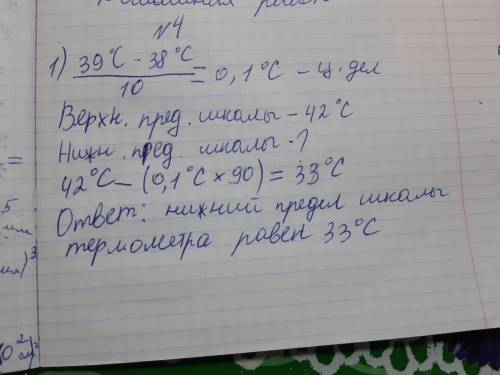 №4
1) 39°C - 38°C / 10 = 0,1°C - ц. дел
Верхн. пред. шкалы - 42°C
Нижн. пред. шкалы - ?
42°C - (0,1°C × 90) = 33°C
Ответ: нижний предел шкалы
термометра равен 33°C
=
5
мм
мм)³